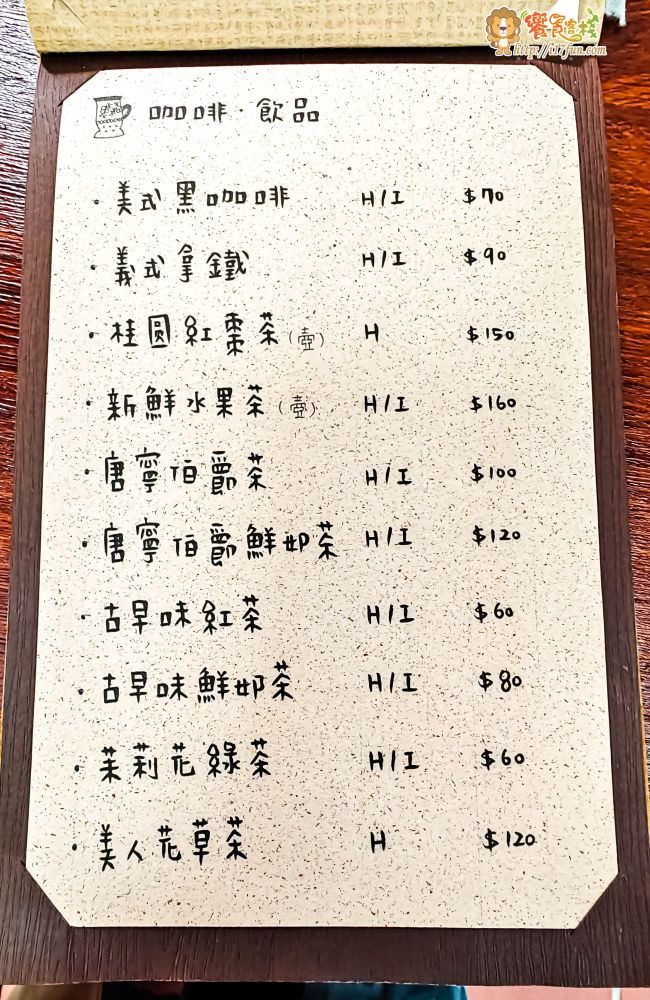 饗食客棧
http://1i7fun.com
咖啡·飲品
·美式黑咖啡 H/I $70
·義式拿鐵 H/I $90
·桂圓紅棗茶(壺) H $150
·新鮮水果茶(壺) H/I $160
·唐寧伯爵茶 H/I $100
·唐寧伯爵鮮奶茶 H/I $120
·古早味紅茶 H/I $60
·古早味鮮奶茶 H/I $80
·茉莉花綠茶 H/I $60
·美人花草茶 H $120